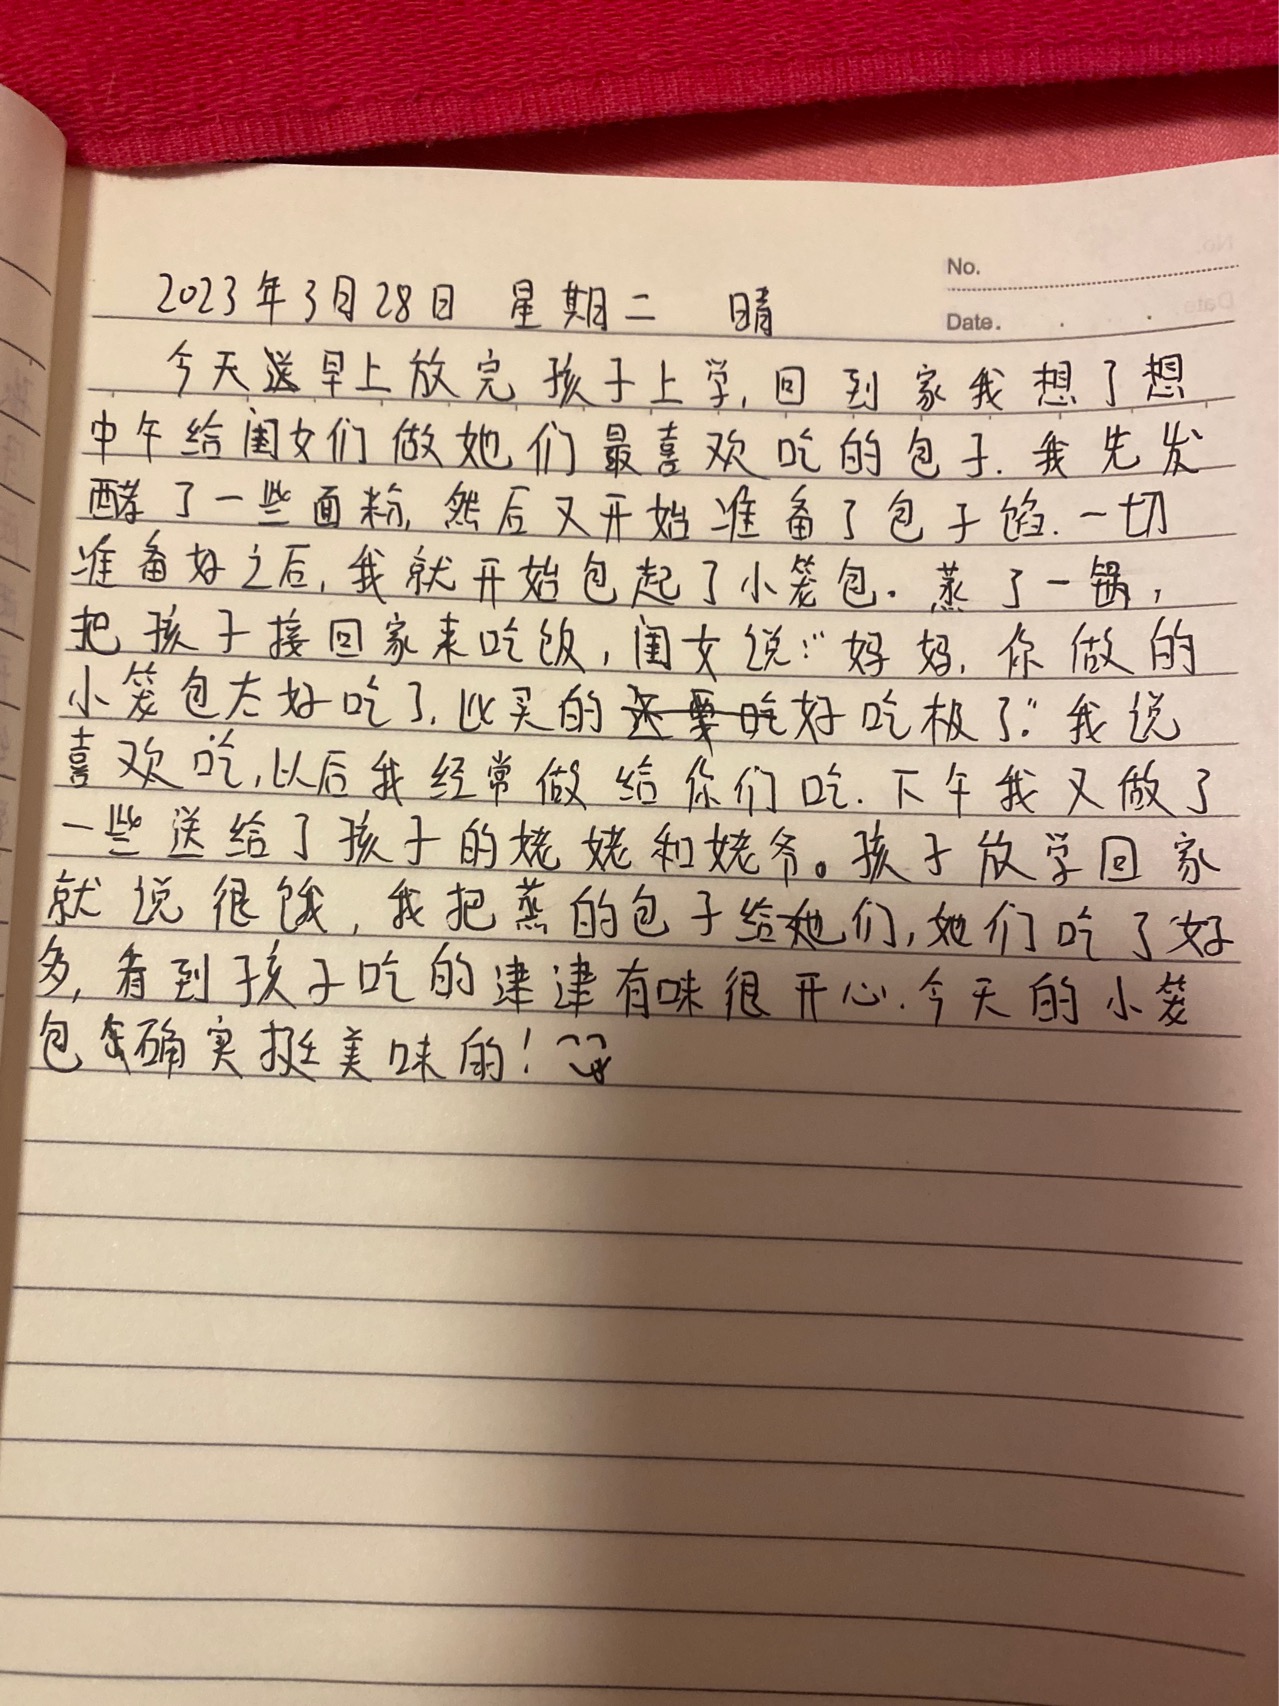 No.
Date.
2023年3月28日 星期二 晴
今天早上放完孩子上学,回到家我想了想
中午给闺女们做她们最喜欢吃的包子.我先发
酵了一些面粉,然后又开始准备了包子馅.一切
准备好之后,我就开始包起了小笼包.蒸了一锅,
把孩子接回家来吃饭,闺女说:"妈妈,你做的
小笼包太好吃了,比买的好吃极了."我说
喜欢吃,以后我经常做给你们吃.下午我又做了
一些送给了孩子的姥姥和姥爷。孩子放学回家
就说很饿,我把蒸的包子给她们,她们吃了好
多,看到孩子吃的津津有味很开心.今天的小笼
包确实挺美味的!